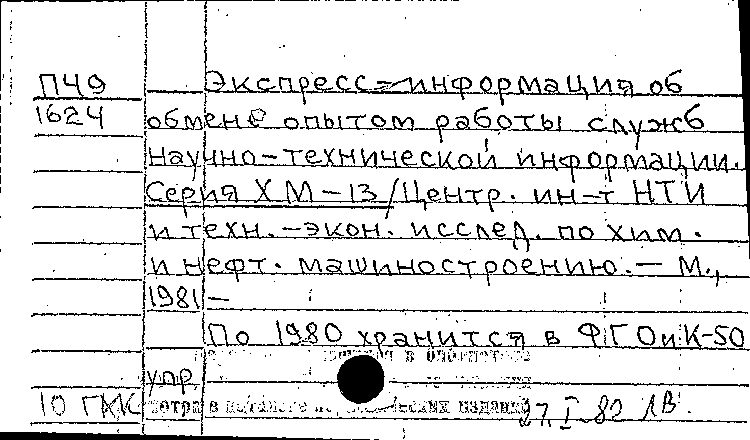 П49 Экспресс-информация об
1624 обмене опытом работы служб
научно-технической информации.
Серия ХМ-13/Центр. ин-т НТИ
и техн.-экон. исслед. по хим.
и нефт. машиностроению. — М.,
1981 —
По 1980 хранится в ФГОиК-50
в библиотеке
упр.
10 ГКК в каталоге изданий
27.I.82 ЛВ.